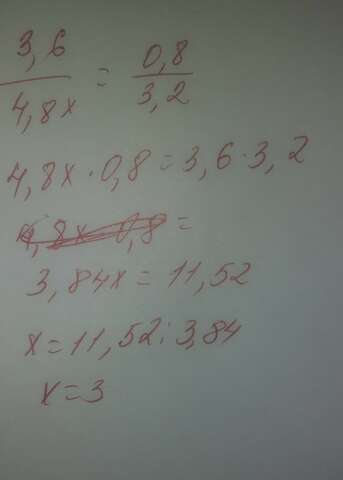 3,6/4,8x = 0,8/3,2
4,8x · 0,8 = 3,6 · 3,2
4,8x · 0,8 =
3,84x = 11,52
x = 11,52 : 3,84
x = 3